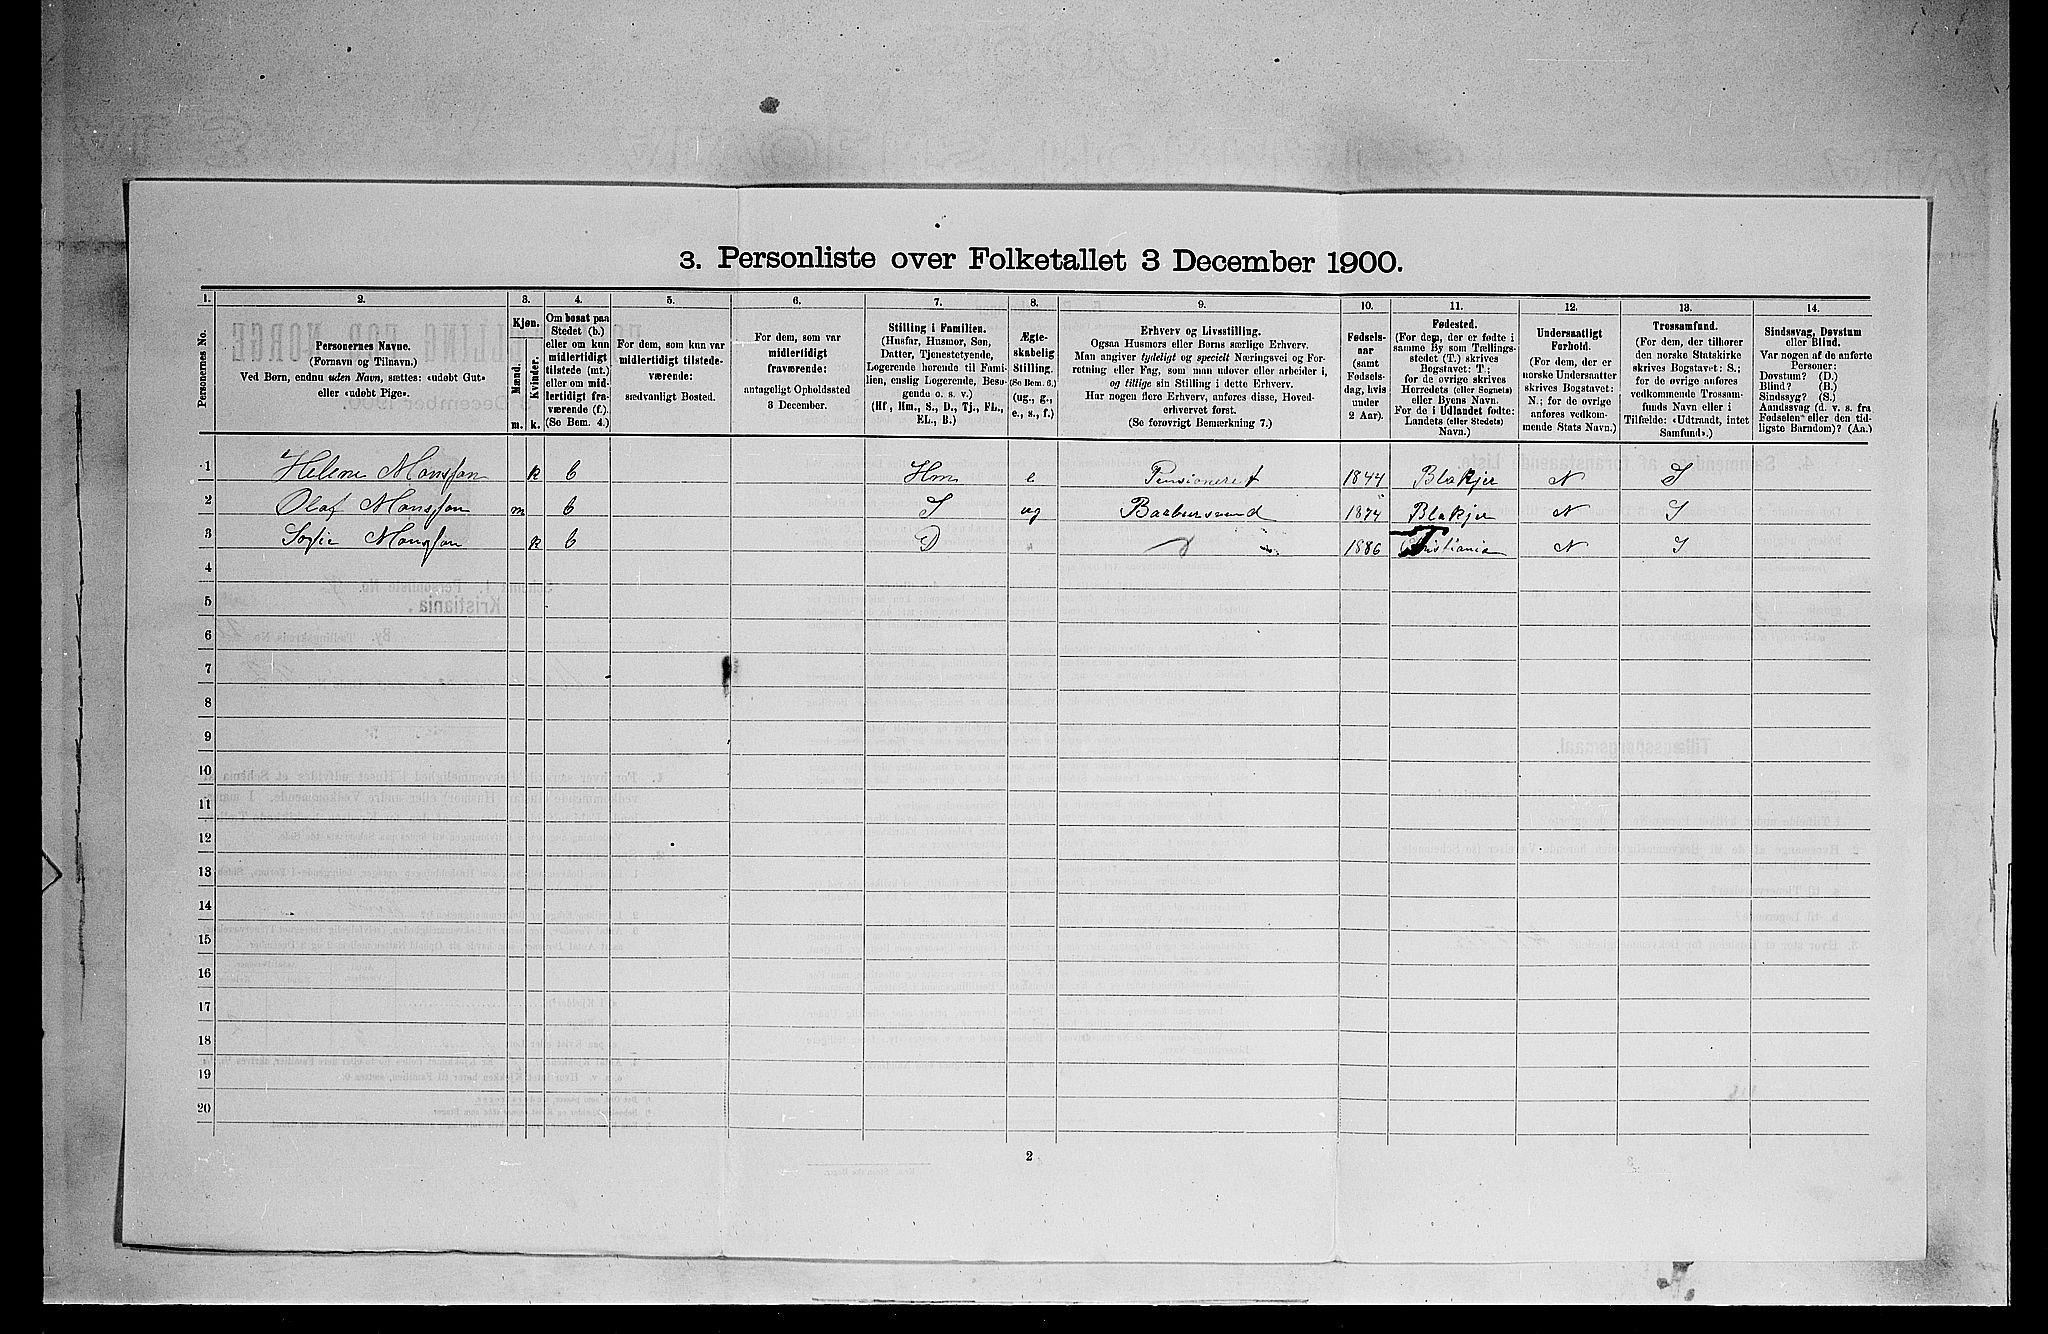 3. Personliste over Folketallet 3 December 1900.
1. 2. 3. 4. 5. 6. 7. 8. 9. 10. 11. 12. 13. 14.
Personernes No.
Personernes Navne.
(Fornavn og Tilnavn.)
Ved Børn, endnu uden Navn, sættes: «udøbt Gut»
eller «udøbt Pige».
Kjøn.
Mænd. Kvinder.
m. k.
Om bosat paa
Stedet (b.)
eller om kun
midlertidigt
tilstede (mt.)
eller om mid-
lertidigt fra-
værende (f.).
(Se Bem. 4.)
For dem, som kun var
midlertidigt tilstede-
værende:
sædvanligt Bosted.
For dem, som var
midlertidigt
fraværende:
antageligt Opholdssted
3 December.
Stilling i Familien.
(Husfar, Husmor, Søn,
Datter, Tjenestetyende,
Logerende hørende til Fami-
lien, enslig Logerende, Besø-
gende o. s. v.)
(Hf., Hm., S., D., Tj., FL.,
EL., B.)
Ægte-
skabelig
Stilling.
(Se Bem. 6.)
(ug., g.,
e., s., f.)
Erhverv og Livsstilling.
Ogsaa Husmors eller Børns særlige Erhverv.
Man angiver tydeligt og specielt Næringsvei og For-
retning eller Fag, som man udøver eller arbeider i,
og tillige sin Stilling i dette Erhverv.
Har nogen flere Erhverv, anføres disse, Hoved-
erhvervet først.
(Se forøvrigt Bemærkning 7.)
Fødsels-
aar
(samt
Fødsels-
dag, hvis
under
2 Aar).
Fødested.
(For dem, der er fødte i
samme By som Tællings-
stedet (T.) skrives
Bogstavet: T.;
for de øvrige skrives
Herredets (eller Sognets)
eller Byens Navn.
For de i Udlandet fødte:
Landets (eller Stedets)
Navn.)
Undersaatligt
Forhold.
(For dem, der er
norske Undersaatter
skrives Bogstavet:
N.; for de øvrige
anføres vedkom-
mende Stats Navn.)
Trossamfund.
(For dem, der tilhører
den norske Statskirke
skrives Bogstavet: S.;
for de øvrige anføres
vedkommende Trossam-
funds Navn eller i
Tilfælde: «Udtraadt, intet
Samfund».)
Sindssvag, Døvstum
eller Blind.
Var nogen af de anførte
Personer:
Døvstum? (D.)
Blind? (B.)
Sindssyg? (S.)
Aandssvag (d. v. s. fra
Fødselen eller den tid-
ligste Barndom)? (Aa.)
1 Helene Monssen k b Hm e Pensioneret 1844 Blakjer N S
2 Olaf Monssen m b S ug 1874 Blakjer N S
3 Sofie Monssen k b D 1886 T N S
4
5
6
7
8
9
10
11
12
13
14
15
16
17
18
19
20
2